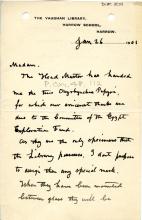 THE VAUGHAN LIBRARY,
HARROW SCHOOL,
HARROW.
Jan. 26 1901
Madam,
The Head Master has handed
me the two Oxyrhynchus Papyri,
for which our sincerest thanks are
due to the Committee of the Egypt
Exploration Fund.
As they are the only specimens that
the Library possesses, I don't propose
to assign them any special nook.
When they have been mounted
between glass they will be